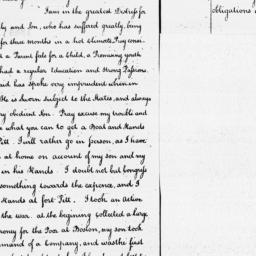 I am in the greatest Distress for
ly and Son, who has suffered greatly, being
for three months in a hot climate. Pray consi-
t a Parent feels for a Child, a Promising youth
had a regular Education and Strong Passions.
aid has spoke very imprudent when in
He is sworn subject to the States, and always
ry obedient Son. Pray excuse my trouble and
e what you can to get a Boat and Hands
Pitt. I will rather go in person, as I have
s at home on account of my son and my
in his Hands. I doubt not but Congress
something towards the expence, and I
Hands at fort Pitt. I took an action
the war. at the begining collected a large
money for the Poor at Boston, my son took
mmand of a Company, and was the first
obligations